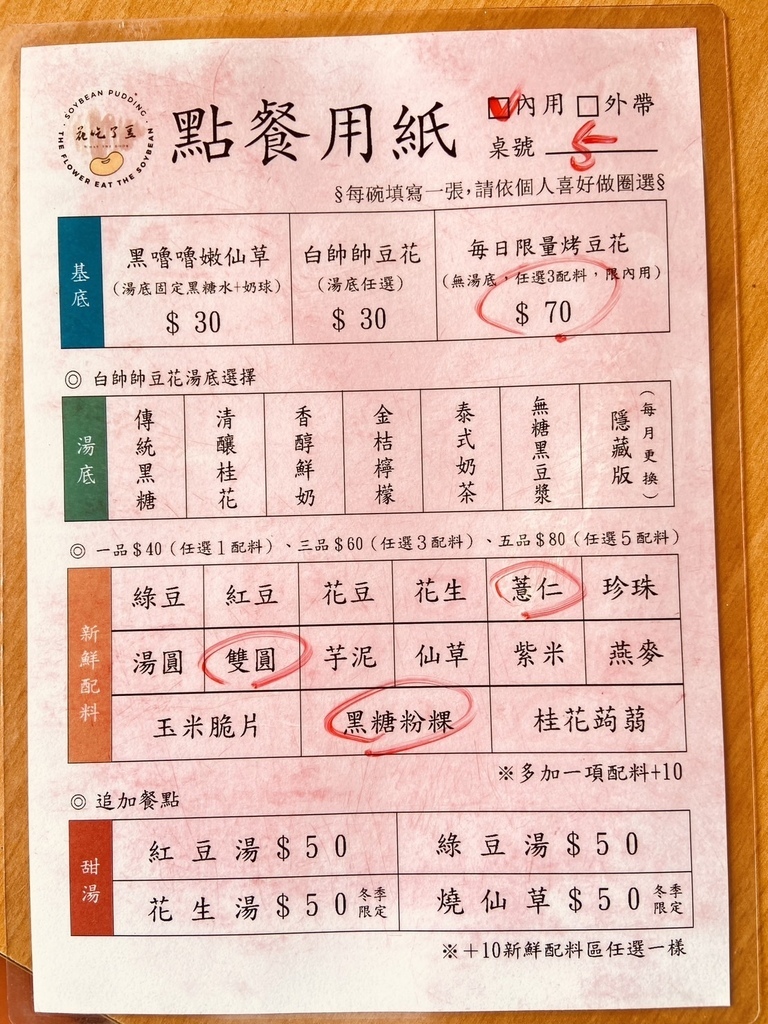 · SOYBEAN PUDDING ·
花吃了豆
THE FLOWER EAT THE SOYBEAN
點餐用紙
內用 外帶
桌號 5
§每碗填寫一張,請依個人喜好做圈選§
基底
黑嚕嚕嫩仙草
(湯底固定黑糖水+奶球)
$ 30
白帥帥豆花
(湯底任選)
$ 30
每日限量烤豆花
(無湯底,任選3配料,限內用)
$ 70
◎ 白帥帥豆花湯底選擇
湯底
傳統黑糖
清釀桂花
香醇鮮奶
金桔檸檬
泰式奶茶
無糖黑豆漿
隱藏版
(每月更換)
◎ 一品$40(任選1配料)、三品$60(任選3配料)、五品$80(任選5配料)
新鮮配料
綠豆 紅豆 花豆 花生 薏仁 珍珠
湯圓 雙圓 芋泥 仙草 紫米 燕麥
玉米脆片 黑糖粉粿 桂花蒟蒻
※多加一項配料+10
◎ 追加餐點
甜湯
紅豆湯$50 綠豆湯$50
花生湯$50 冬季限定 燒仙草$50 冬季限定
※+10新鮮配料區任選一樣